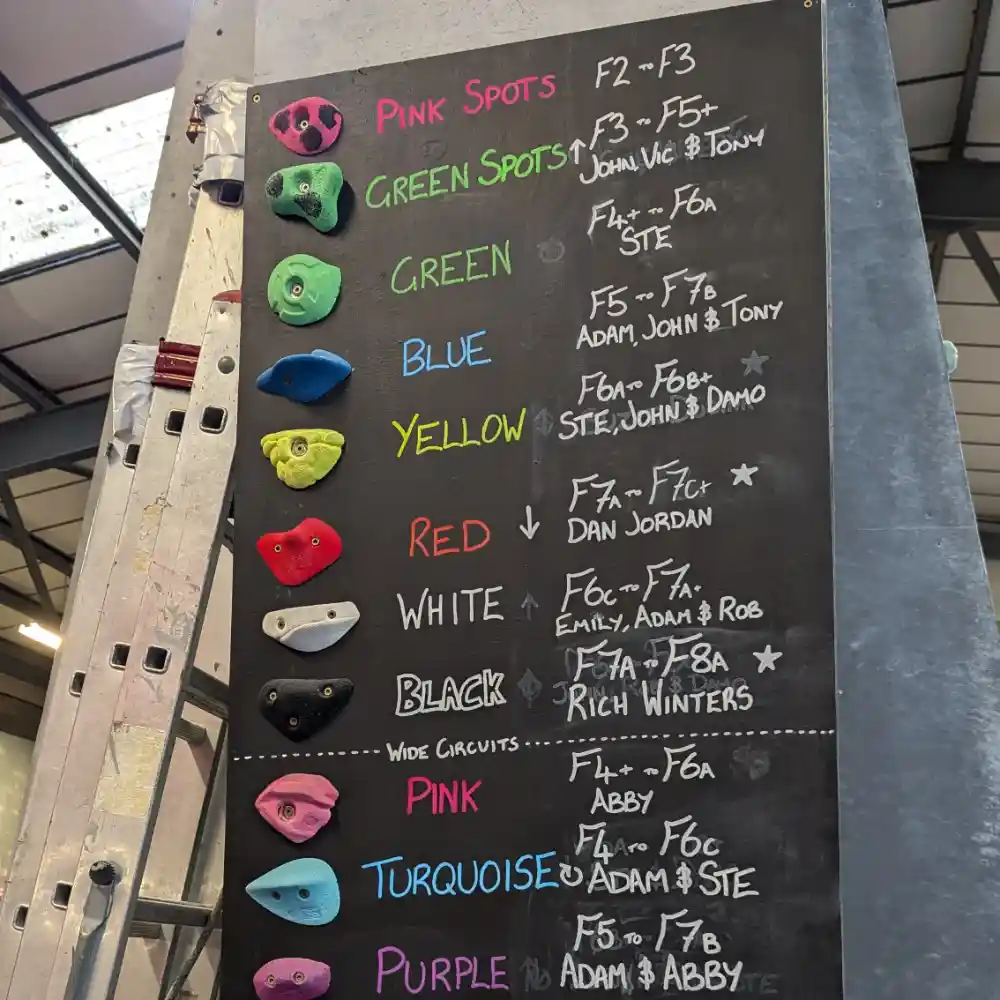 PINK SPOTS F2 TO F3
GREEN SPOTS ↑ F3 TO F5+
JOHN, VIC $ TONY
GREEN F4+ TO F6A
STE
BLUE F5 TO F7B
ADAM, JOHN $ TONY
YELLOW F6A TO F6B+
STE, JOHN $ DAMO
RED ↓ F7A TO F7C+ ★
DAN JORDAN
WHITE F6C TO F7A+
EMILY, ADAM $ ROB
BLACK F7A TO F8A ★
RICH WINTERS
WIDE CIRCUITS
PINK F4+ TO F6A
ABBY
TURQUOISE ↻ F4 TO F6C
ADAM $ STE
PURPLE F5 TO F7B
ADAM $ ABBY